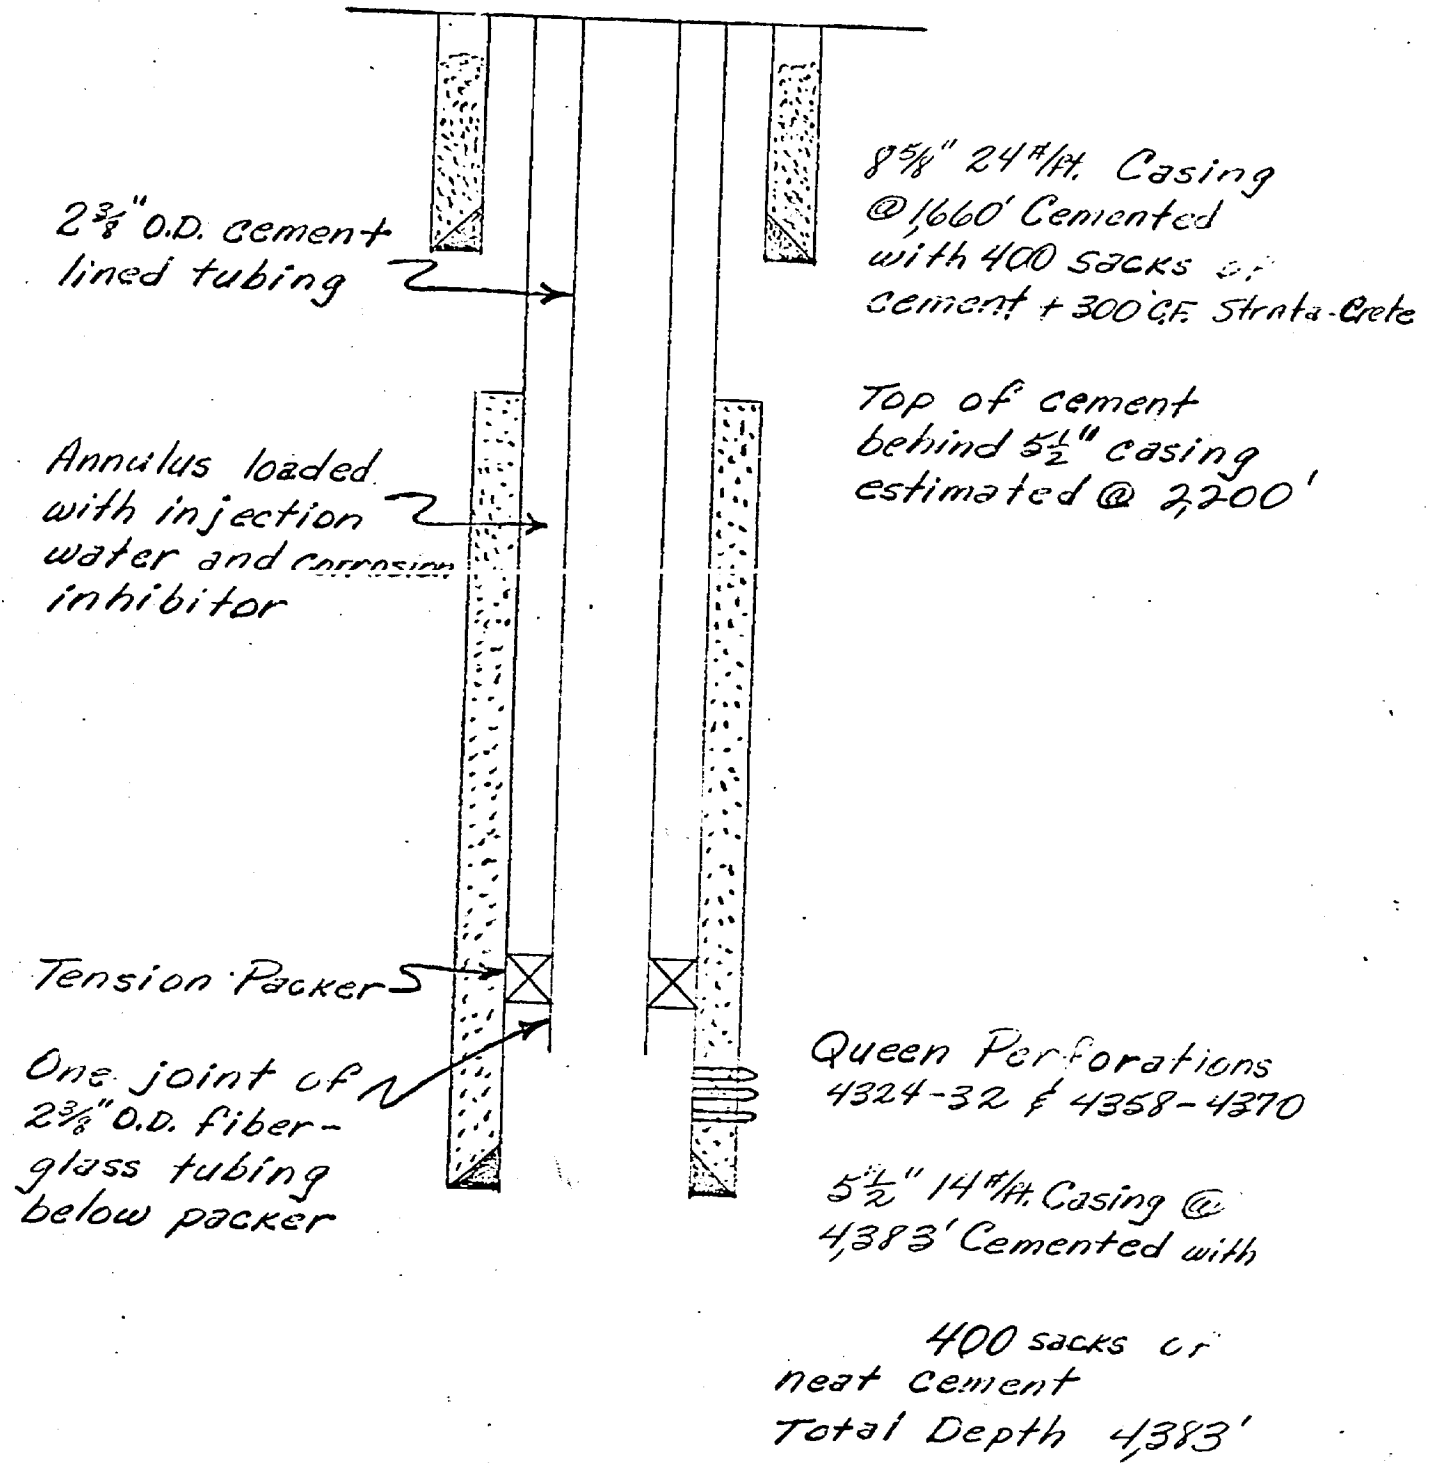 2 3/8" O.D. cement
lined tubing
Annulus loaded
with injection
water and corrosion
inhibitor
Tension Packer
One joint of
2 3/8" O.D. fiber-
glass tubing
below packer
8 5/8" 24#/ft. Casing
@ 1,660' Cemented
with 400 sacks of
cement + 300 C.F. Strata-Crete
Top of cement
behind 5 1/2" casing
estimated @ 2,200'
Queen Perforations
4324-32 & 4358-4370
5 1/2" 14#/ft. Casing @
4,383' Cemented with
400 sacks of
neat cement
Total Depth 4,383'